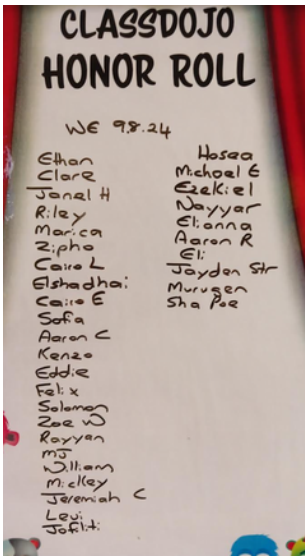 CLASSDOJO
HONOR ROLL
WE 9.8.24
Ethan
Clare
Janel H
Riley
Marica
Zipho
Cairo L
Elshadhai
Cairo E
Sofia
Aaron C
Kenzo
Eddie
Felix
Solomon
Zoe W
Rayyan
MJ
William
Mickey
Jeremiah C
Levi
Hosea
Michael E
Ezekiel
Nayyar
Elianna
Aaron R
Eli
Jayden Str
Murugen
Sha Poe